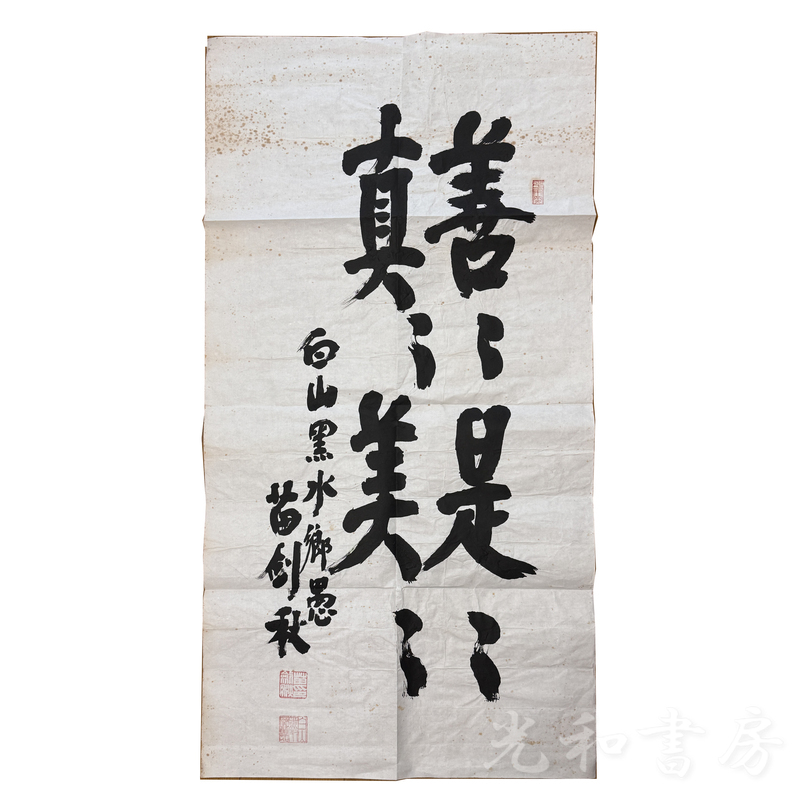 善〻是〻
真〻美〻
白山黑水鄉愚
苗劍秋
光和書房